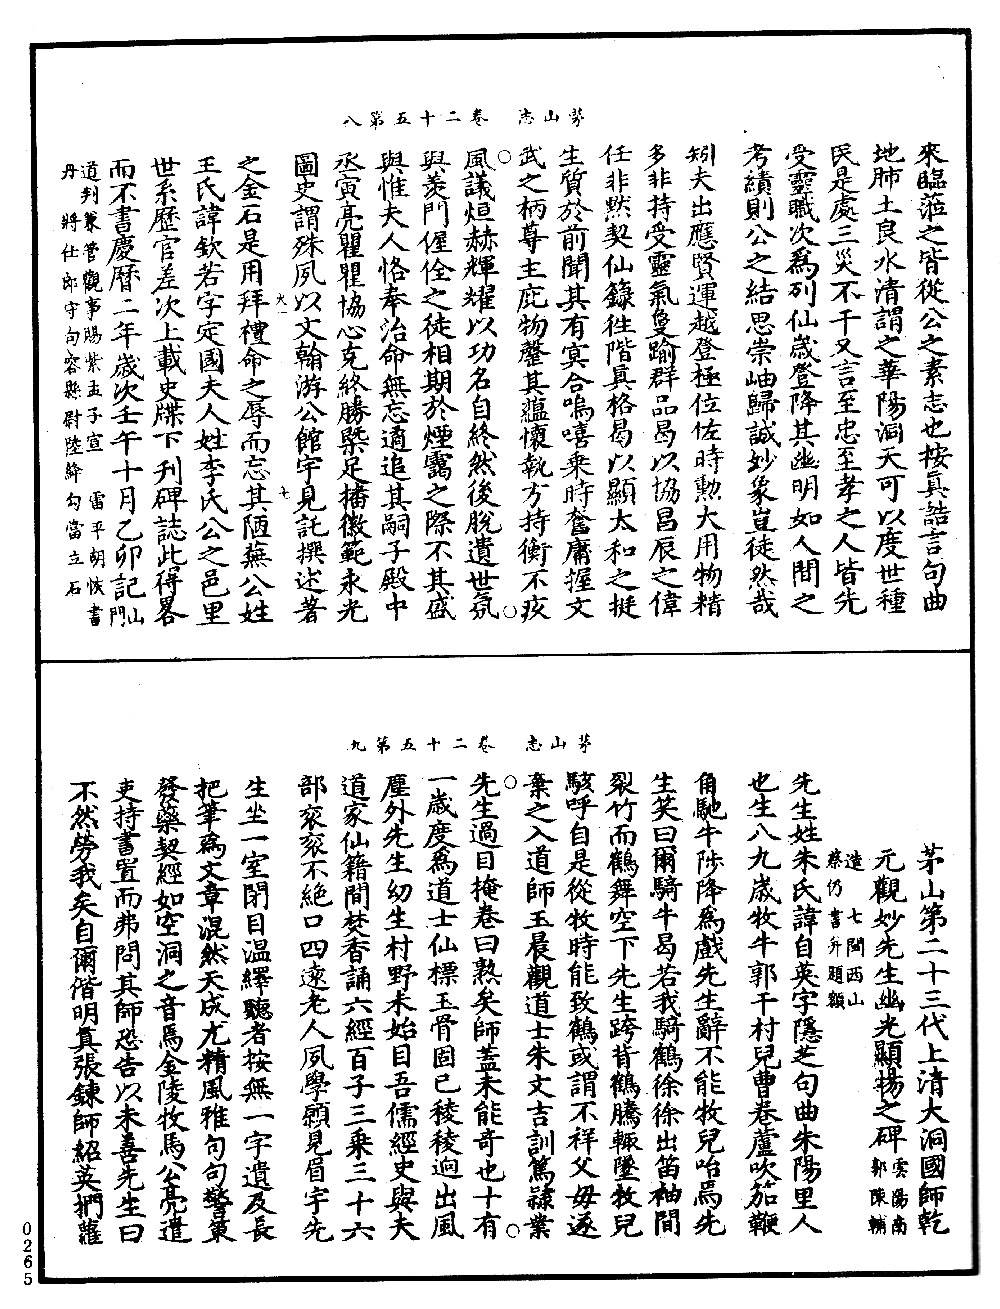 茅山志　卷二十五第八
來臨蒞之皆從公之素志也按眞誥言句曲
地肺土良水清謂之華陽洞天可以度世種
民是處三災不干又言至忠至孝之人皆先
受靈職次爲列仙歲登降其幽明如人間之
考績則公之結思崇岫歸誠妙象豈徒然哉
矧夫出應賢運越登極位佐時勲大用物精
多非持受靈氣敻踰群品曷以協昌辰之偉
任非黙契仙籙徃階眞格曷以顯太和之挺
生質於前聞其有㝠合嗚嘻乘時奮庸握文
武之柄尊主庇物罄其蘊懷執方持衡不疚
風議烜赫輝耀以功名自終然後脫遺世氛
與羡門偓佺之徒相期於煙靄之際不其盛
與惟夫人恪奉治命無忘遹追其嗣子殿中
丞寅亮瞿瞿協心克終勝槩足播徽範永光
圖史謂殊夙以文翰游公館宇見託撰述著
之金石是用拜禮命之辱而忘其陋蕪公姓
王氏諱欽若字定國夫人姓李氏公之邑里
世系歷官差次上載史牒下刋碑誌此得畧
而不書慶曆二年歲次壬午十月乙卯記山門
道判兼管觀事賜紫孟子宣　雷平朝恢書
丹　將仕郎守句容縣尉陸絳句當立石
茅山志　卷二十五第九
茅山第二十三代上清大洞國師乾
元觀妙先生幽光顯揚之碑雲陽南郭陳輔
造　七閩西山蔡仍書并題額
先生姓朱氏諱自英字隱芝句曲朱陽里人
也生八九歲牧牛郭干村兒曹卷蘆吹笳鞭
角馳牛陟降爲戲先生辭不能牧兒咍焉先
生笑曰爾騎牛曷若我騎鶴徐徐出笛袖間
裂竹而鶴舞空下先生跨背鶴騰輙墜牧兒
駭呼自是從牧時能致鶴或謂不祥父母遂
棄之入道師玉晨觀道士朱文吉訓篤𨽻業
先生過目掩卷曰熟矣師蓋未能奇也十有
一歲度爲道士仙標玉骨固已稜稜逈出風
塵外先生幼生村野未始目吾儒經史與夫
道家仙籍間焚香誦六經百子三乘三十六
部衮衮不絕口四遠老人夙學願見眉宇先
生坐一室閉目溫繹聽者按無一字遺及長
把筆爲文章混然天成尤精風雅句句警策
發藥契經如空洞之音焉金陵牧馬公亮遣
吏持書置而弗問其師恐告以未善先生曰
不然勞我矣自爾偕明眞張鍊師紹英捫蘿
0265